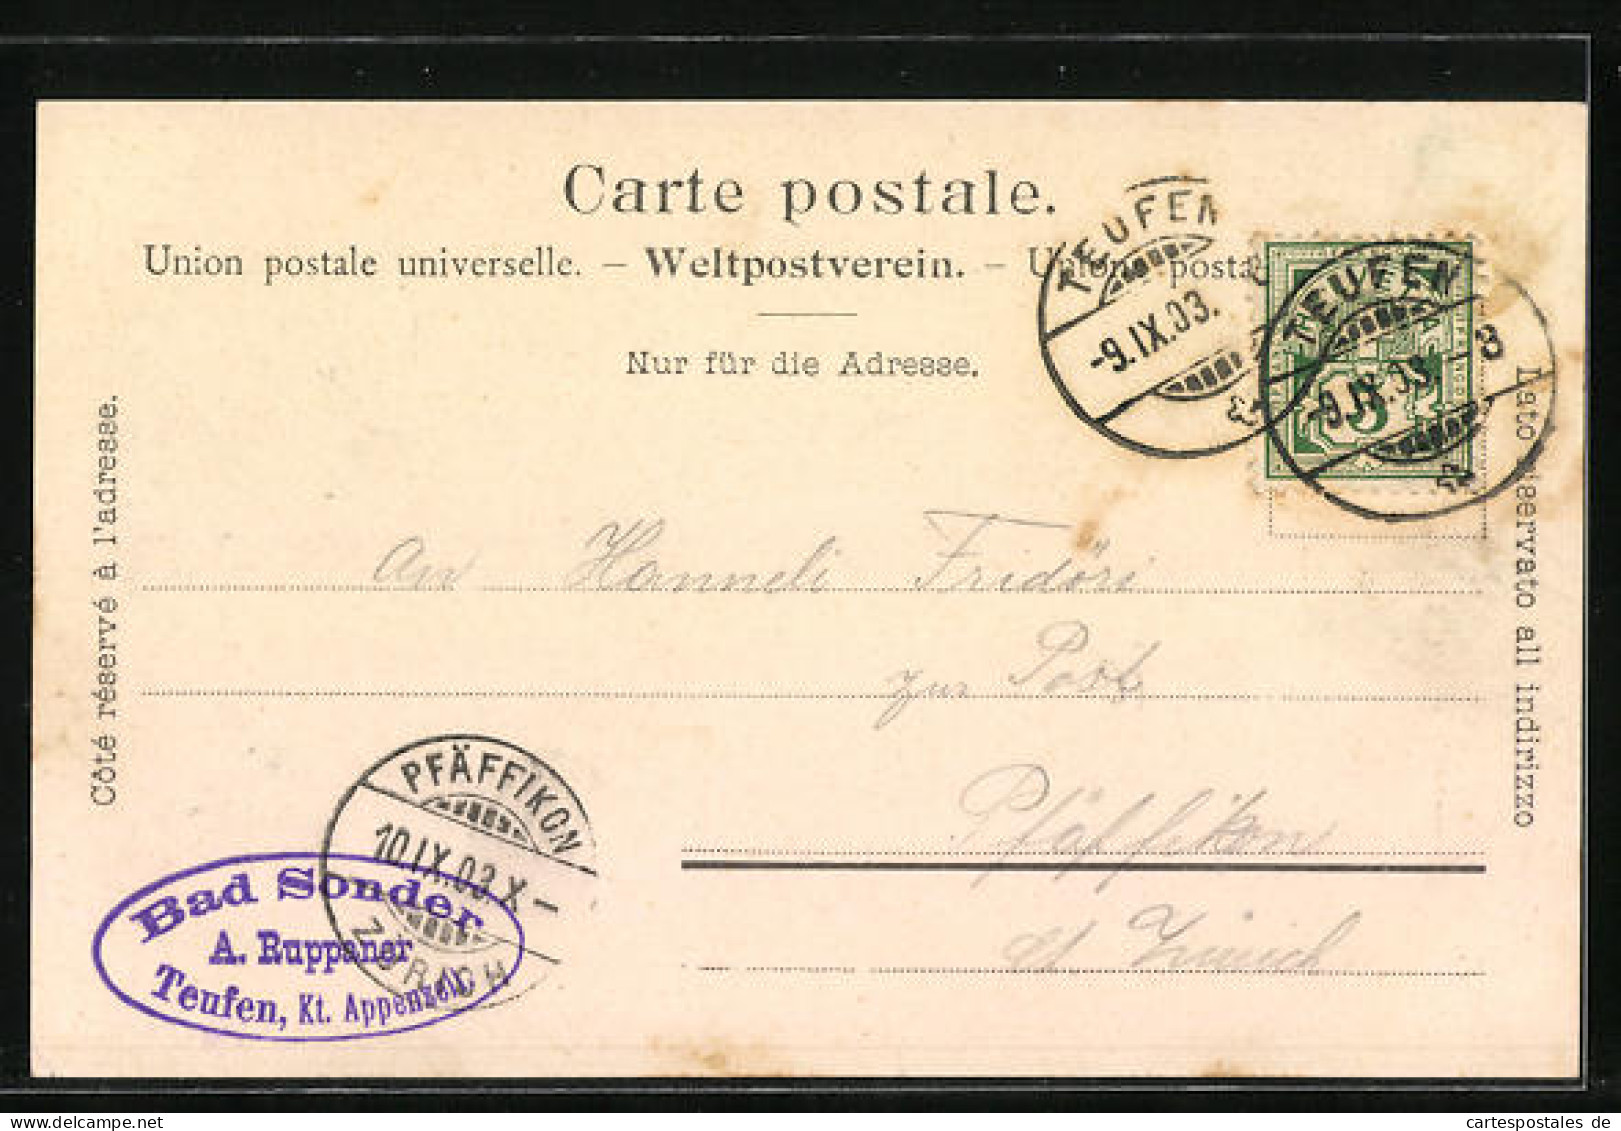 Carte postale.
Union postale universelle. – Weltpostverein. – Union posta
Nur für die Adresse.
Côté réservé à l'adresse.
Lato riservato all indirizzo
TEUFEN
-9.IX.03.
TEUFEN
-9.IX.03.-8
5
An Hanneli Fridöri
zur Post
Pfäffikon
Kt Zürich
PFÄFFIKON
10.IX.03.X-
ZÜRICH
Bad Sonder
A. Ruppaner
Teufen, Kt. Appenzell.
www.cartespostales.eu
cartespostales de